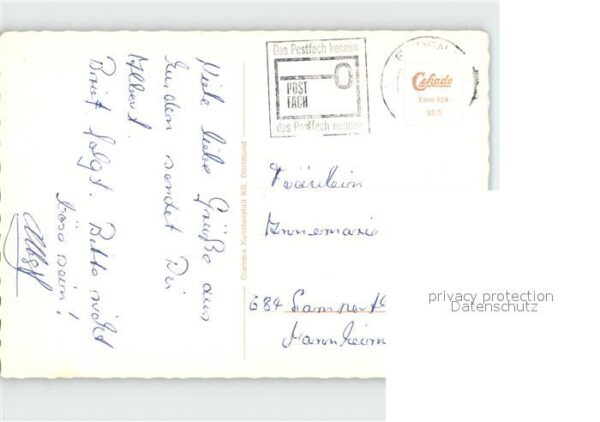 Viele liebe Grüße aus
Emden sendet Dir
Albert.
Brief folgt. Bitte nicht
böse sein!
Das Postfach kennen
POST
FACH
das Postfach nennen
EMDEN
Cekade
Emn 124
Cramers Kunstanstalt KG, Dortmund
Fräulein
Annemarie
684 Lamperth
Mannheim
privacy protection
Datenschutz